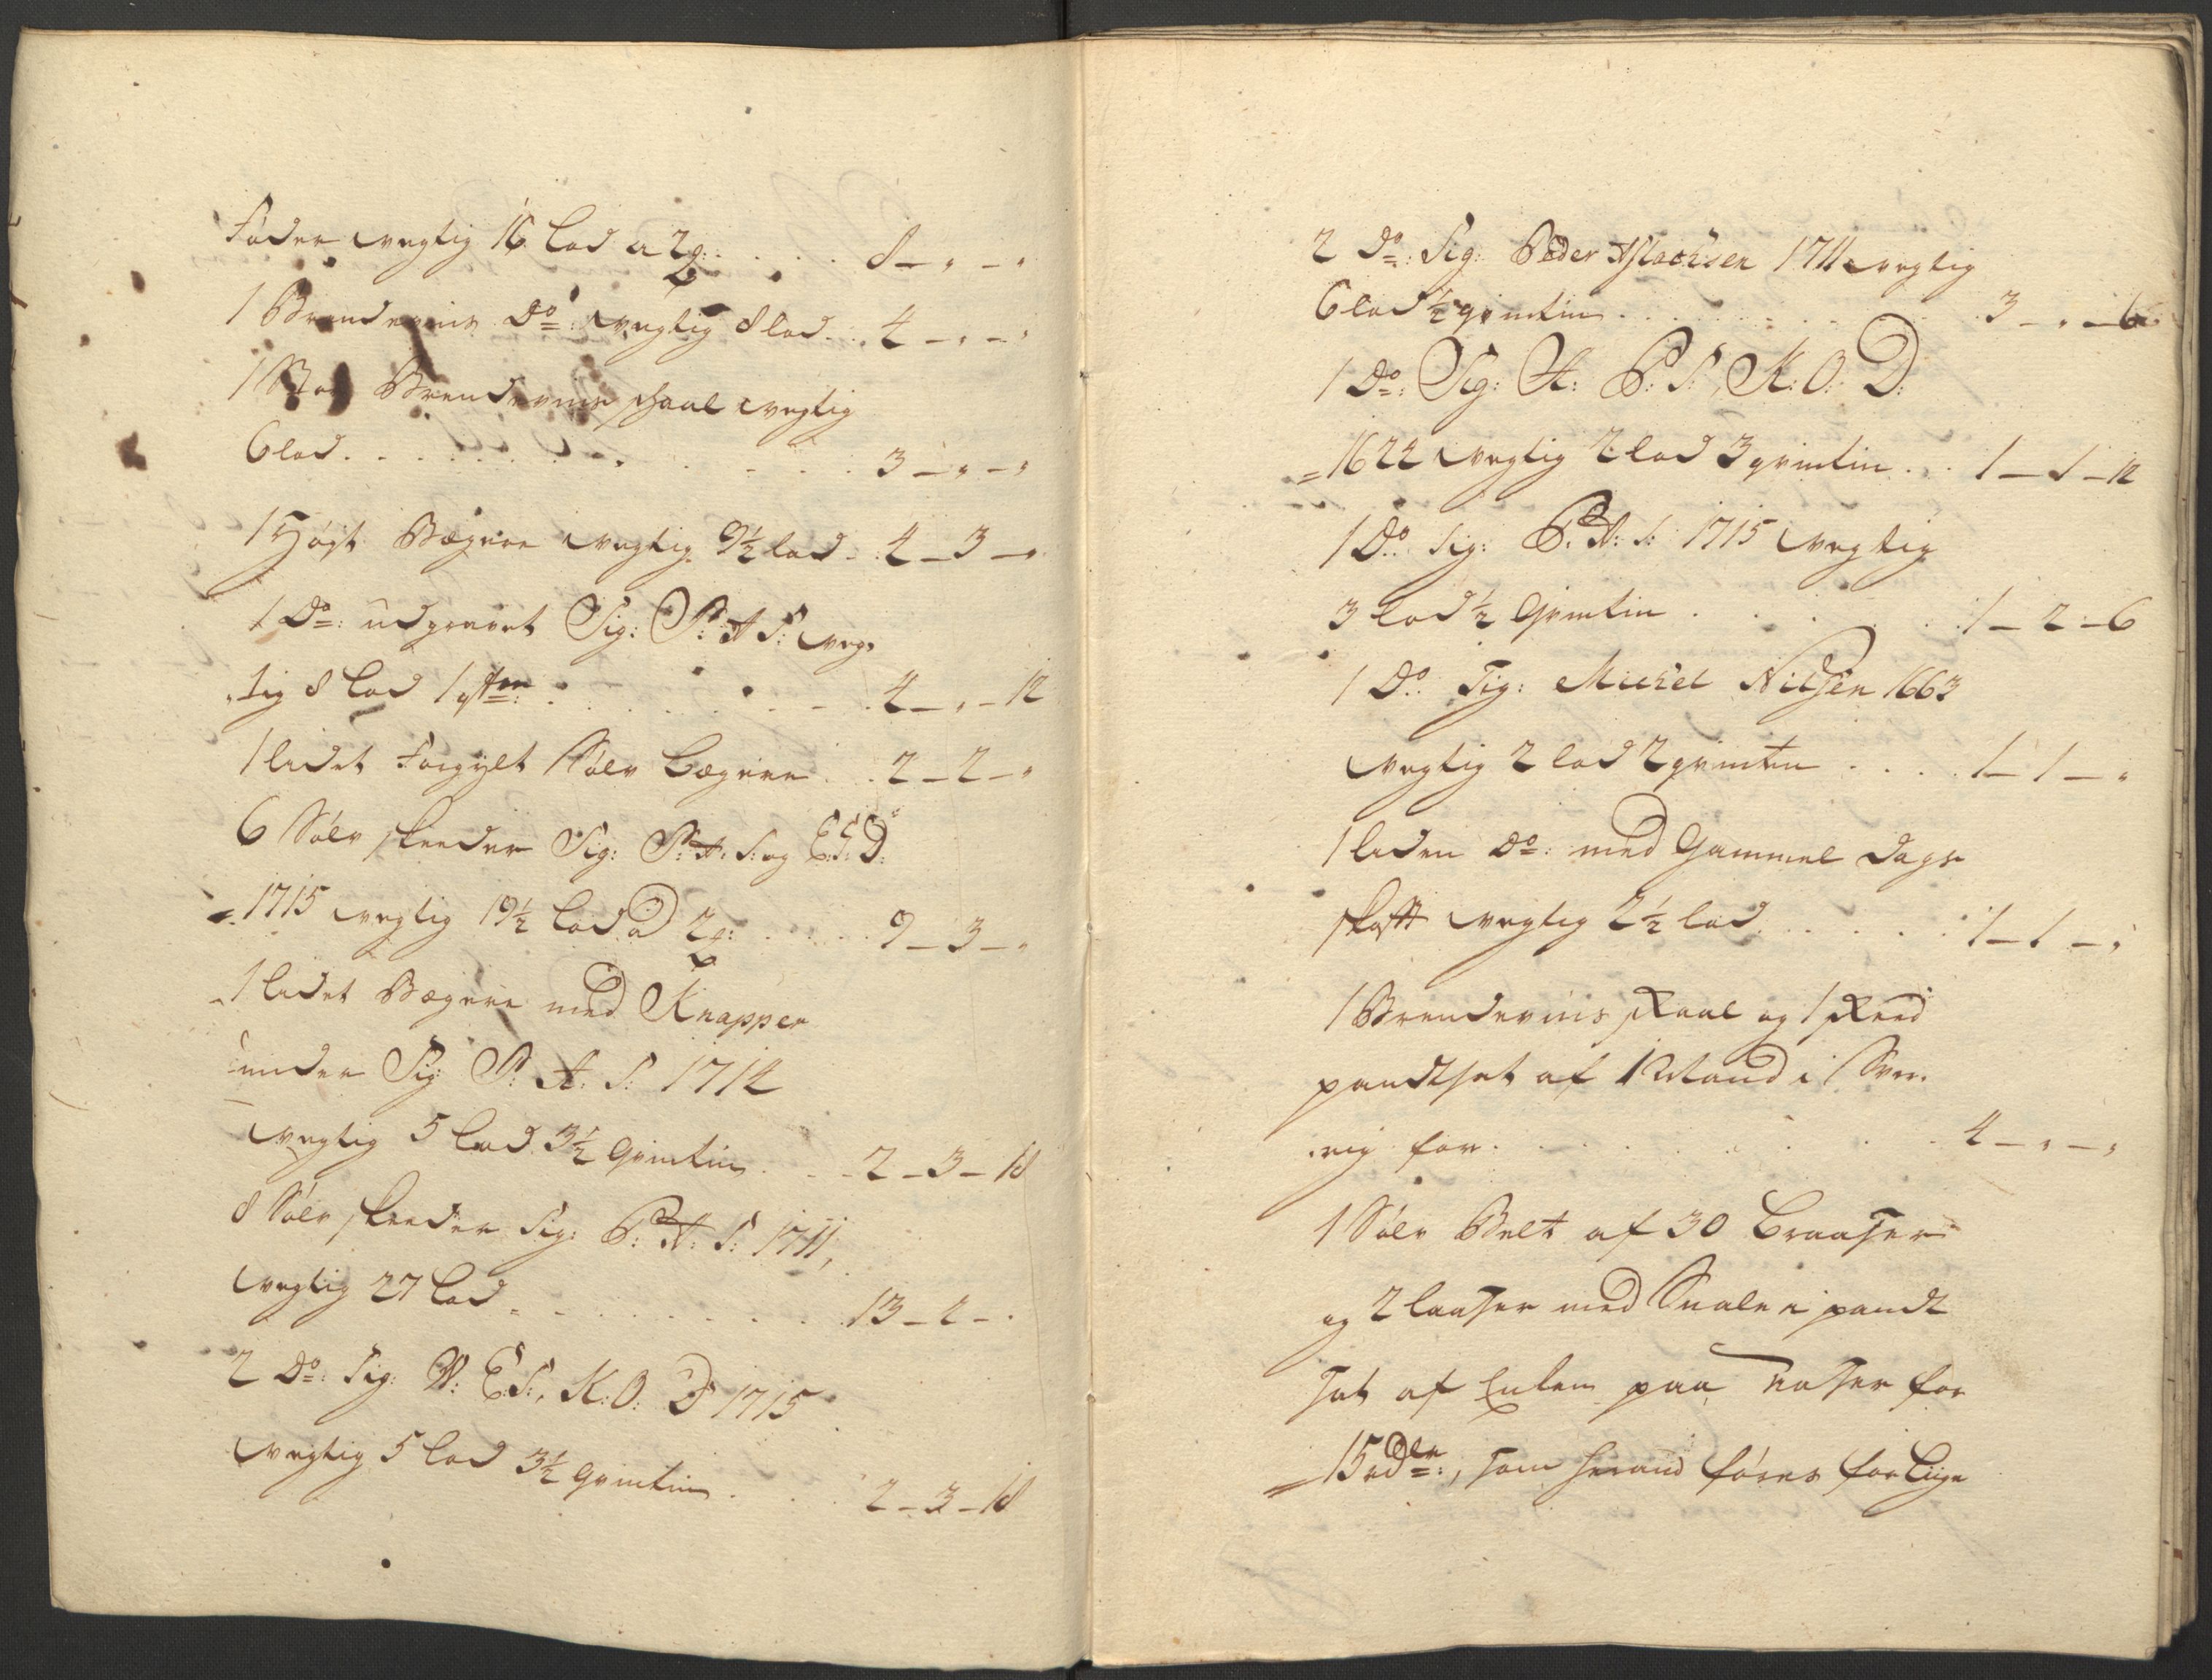 föder vegtig 16 Lod a 2 . . . . . 8 – " – "
1 Brendeviins Do: vegtig 8 lod . . 4 – " – "
1 Brendeviins schaal vegtig
6 lod . . . . . . . . . . 3 – " – "
1 Högt Bægere vegtig 9½ lod . . 4 – 3 – "
1 Do: udgravet Sig: P: A S: veg-
tig 8 Lod 1 qtn: . . . . . . 4 – " – 12
1 lidet forgylt Sölv Bægere . . 2 – 2 – "
6 Sölv skeeder Sig: P: A: S: og E: S: D:
1715 vegtig 19½ Lod a 2 . . . . 9 – 3 – "
1 lidet Bægere med Knapper
under Sig P: A: S: 1714
vegtig 5 Lod 3½ qvintin . . 2 – 3 – 18
8 Sölv skeeder Sig: P: A: S: 1711,
vegtig 27 Lod . . . . . . . 13 – 2 – "
2 Do: Sig: N: E: S:, K: O: D 1715
vegtig 5 Lod 3½ qvintin . . . 2 – 3 – 18
2 Do: Sig: Peder Aslachsen 1711 vegtig
6 lod ½ qvintin . . . . . . . 3 – " – 6
1 Do: Sig: A: P: S:, K: O: D:
1622 vegtig 2 lod 3 qvintin . . . 1 – 1 – 12
1 Do: Sig: P: A: S: 1715 vegtig
3 lod ½ Qvintin . . . . . . 1 – 2 – 6
1 Do: Sig: Michel Nilsen 1663
vegtig 2 lod 2 qvintin . . . . 1 – 1 – "
1 liden Do: med Gammel Dags
skafft vegtig 2½ lod . . . . . 1 – 1 – "
1 Brendeviins skaal og 1 skeed
pandtsat af 1 Mand i Sver-
rig for . . . . . . . . . 4 – " – "
1 Sölv Belt af 30 Braaser
og 2 laaser med Snale i pandt
sat af paa for
15 rdlr:, som herand föres for Liige